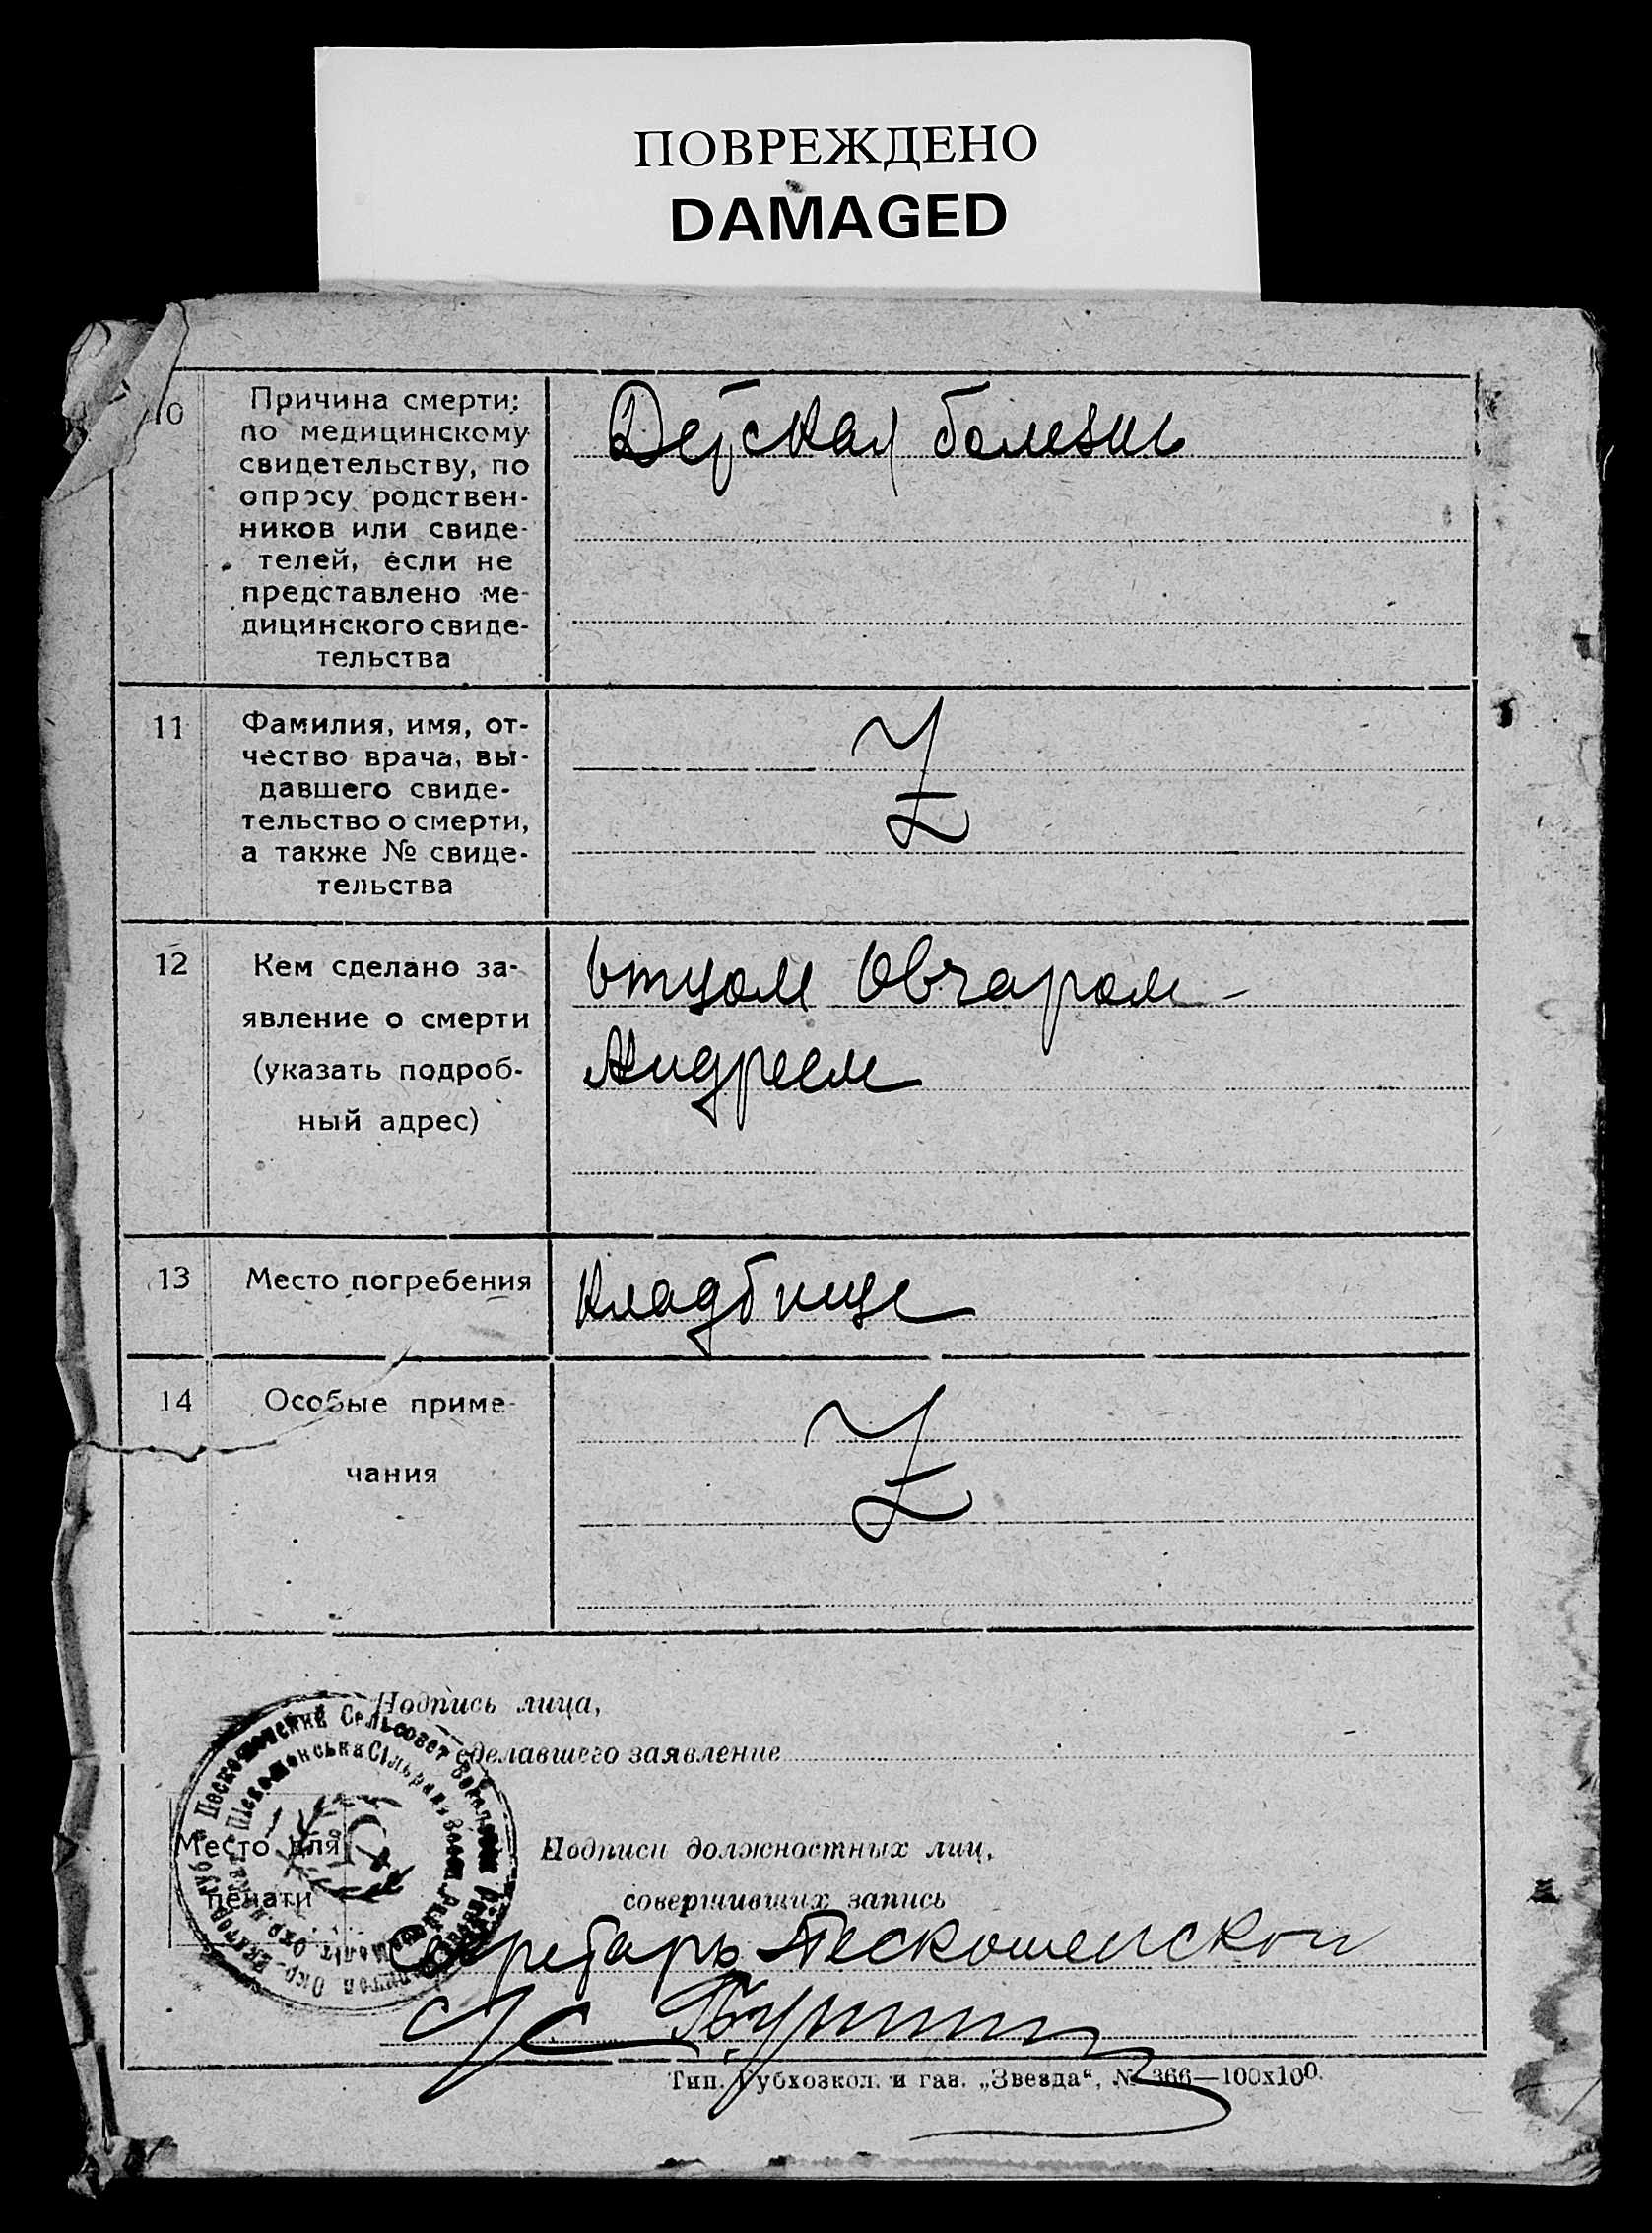 ПОВРЕЖДЕНО
DAMAGED
10
Причина смерти:
по медицинскому
свидетельству, по
опросу родствен-
ников или свиде-
телей, если не
представлено ме-
дицинского свиде-
тельства
Детская болезнь
11
Фамилия, имя, от-
чество врача, вы-
давшего свиде-
тельство о смерти,
а также № свиде-
тельства
Z
12
Кем сделано за-
явление о смерти
(указать подроб-
ный адрес)
отцом Овчаром-
Андреем
13
Место погребения
Кладбище
14
Особые приме-
чания
Z
Подпись лица,
сделавшего заявление
Песношенский Сельсовет
Сільрада
Место для
печати
Подписи должностных лиц,
совершивших запись
Секретарь Пескошенской
с/с
Тип. Губхозкол. и газ. „Звезда“, № 366—100х100.